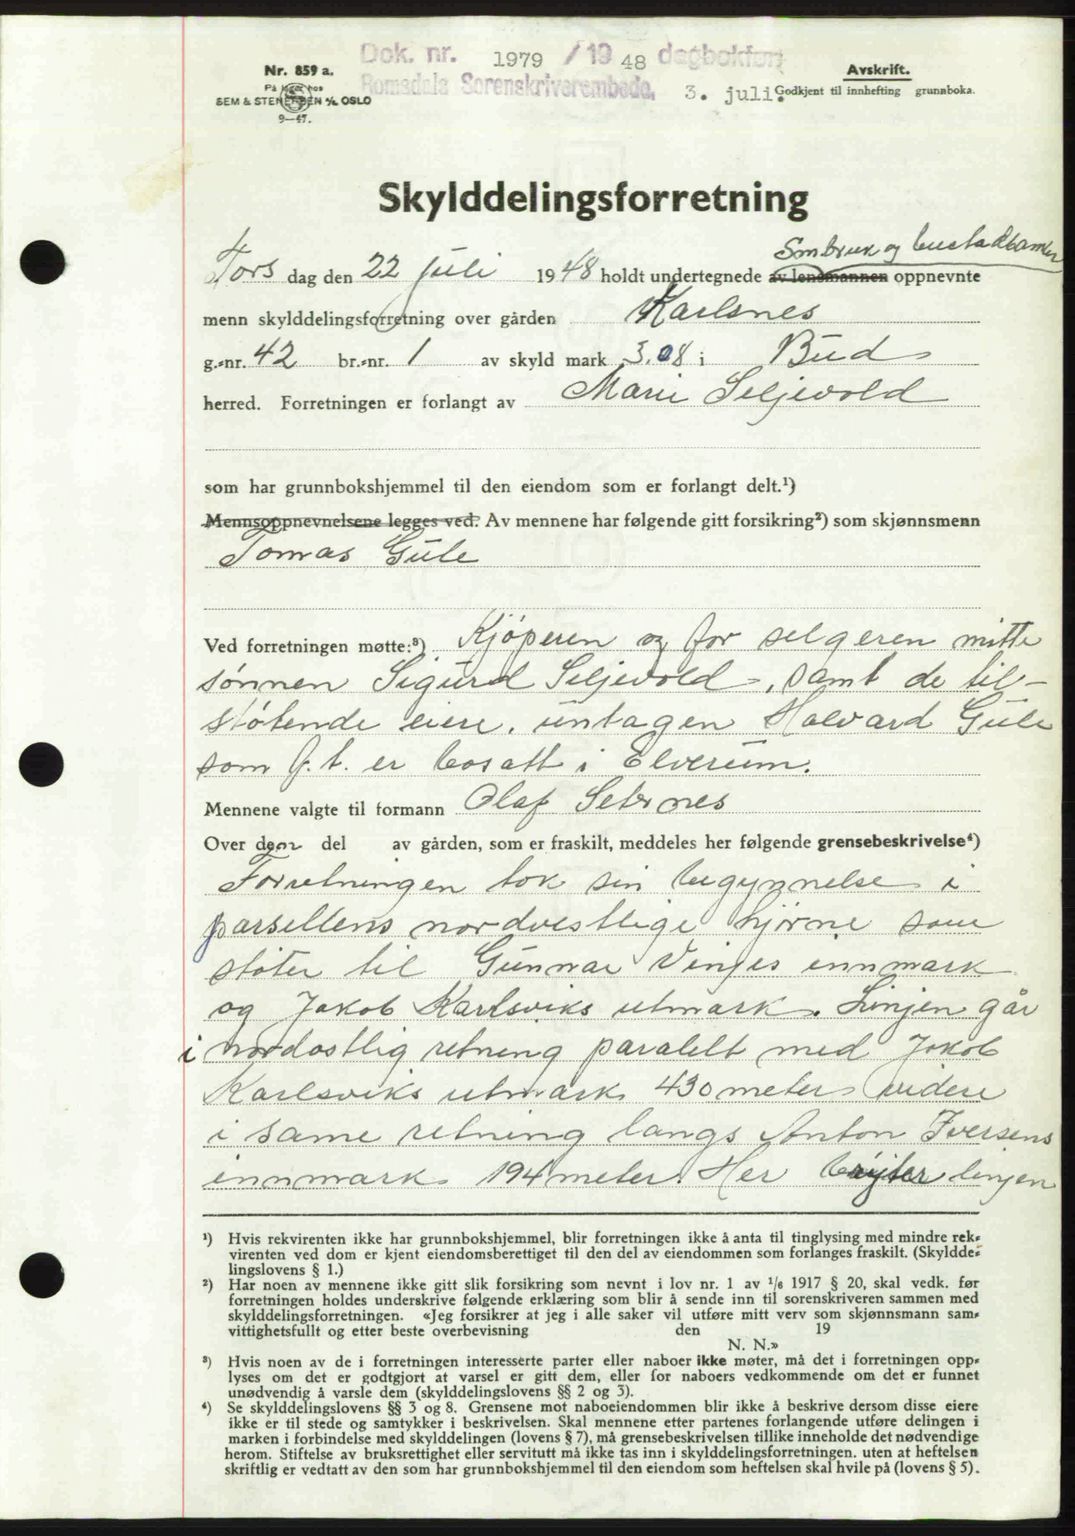 Dok. nr. 1979 / 1948 dagbokført
Romsdals Sorenskriverembede, 3. juli.
Nr. 859 a.
På lager hos
SEM & STENERSEN A/S OSLO
9—47.
Avskrift.
Godkjent til innhefting grunnboka.
Skylddelingsforretning
Smbruk og bustadbanken
Tors dag den 22 juli 1948 holdt undertegnede av lensmannen oppnevnte
menn skylddelingsforretning over gården Karlsnes
g.-nr. 42 br.-nr. 1 av skyld mark 3.08 i Bud
herred. Forretningen er forlangt av Marie Seljevold
som har grunnbokshjemmel til den eiendom som er forlangt delt.¹)
Mennsoppnevnelsene legges ved. Av mennene har følgende gitt forsikring²) som skjønnsmenn
Tomas Gule
Ved forretningen møtte:³) Kjøperen og for selgeren møtte
sønnen Sigurd Seljevold, samt de til-
støtende eiere, untagen Halvard Gule
som f.t. er bosatt i Elverum.
Mennene valgte til formann Olaf Seternes
Over den del av gården, som er fraskilt, meddeles her følgende grensebeskrivelse⁴)
Forretningen tok sin begynnelse i
parsellens nordvestlige hjørne som
støter til Gunnar Venjes innmark
og Jakob Karlsviks utmark. Linjen går
i nordostlig retning paralelt med Jakob
Karlsviks utmark 430 meter videre
i same retning langs Anton Iversens
innmark 194 meter. Her bryter linjen
¹) Hvis rekvirenten ikke har grunnbokshjemmel, blir forretningen ikke å anta til tinglysing med mindre rek-
virenten ved dom er kjent eiendomsberettiget til den del av eiendommen som forlanges fraskilt. (Skyldde-
lingslovens § 1.)
²) Har noen av mennene ikke gitt slik forsikring som nevnt i lov nr. 1 av 1/6 1917 § 20, skal vedk. før
forretningen holdes underskrive følgende erklæring som blir å sende inn til sorenskriveren sammen med
skylddelingsforretningen. «Jeg forsikrer at jeg i alle saker vil utføre mitt verv som skjønnsmann sam-
vittighetsfullt og etter beste overbevisning den 19
N. N.»
³) Hvis noen av de i forretningen interesserte parter eller naboer ikke møter, må det i forretningen opp-
lyses om det er godtgjort at varsel er gitt dem, eller for naboers vedkommende om det er funnet
unødvendig å varsle dem (skylddelingslovens §§ 2 og 3).
⁴) Se skylddelingslovens §§ 3 og 8. Grensene mot naboeiendommen blir ikke å beskrive dersom disse eiere
ikke er til stede og samtykker i beskrivelsen. Skal mennene etter partenes forlangende utføre delingen i
marken i forbindelse med skylddelingen (lovens § 7), må grensebeskrivelsen tillike inneholde det nødvendige
herom. Stiftelse av bruksrettighet eller servitutt må ikke tas inn i skylddelingsforretningen. uten at heftelsen
skriftlig er vedtatt av den som har grunnbokshjemmel til den eiendom som heftelsen skal hvile på (lovens § 5).